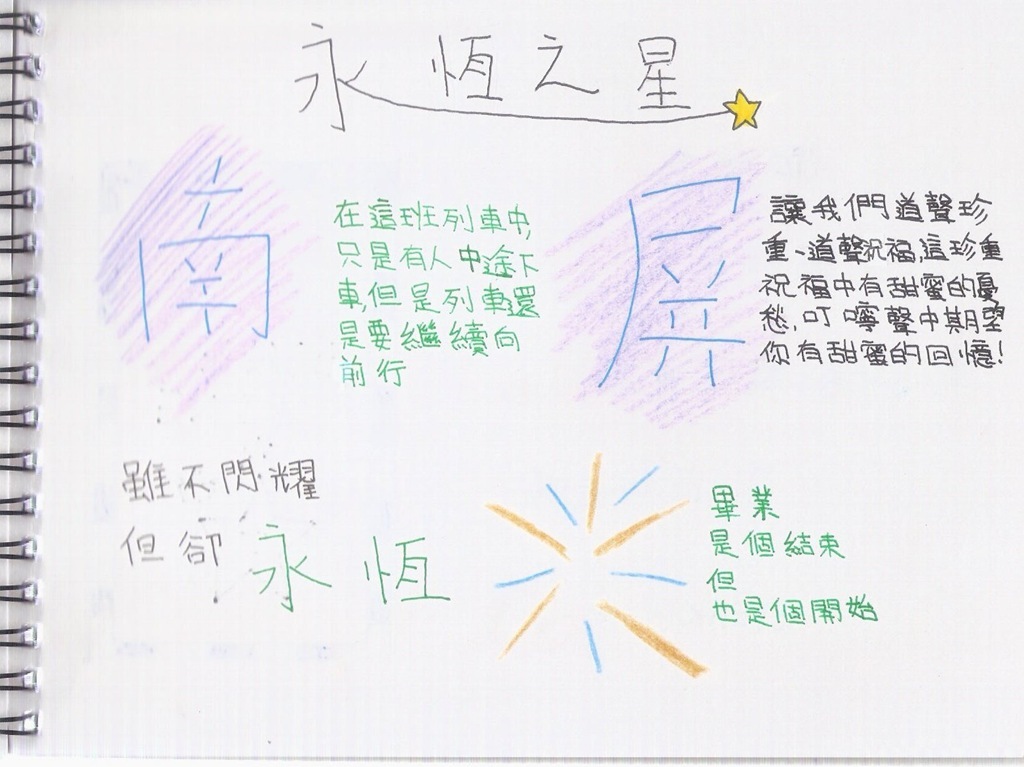 永恆之星
南
在這班列車中,
只是有人中途下
車,但是列車還
是要繼續向
前行
屏
讓我們道聲珍
重、道聲祝福,這珍重
祝福中有甜蜜的憂
愁,叮嚀聲中期望
你有甜蜜的回憶!
雖不閃耀
但卻永恆
畢業
是個結束
但
也是個開始